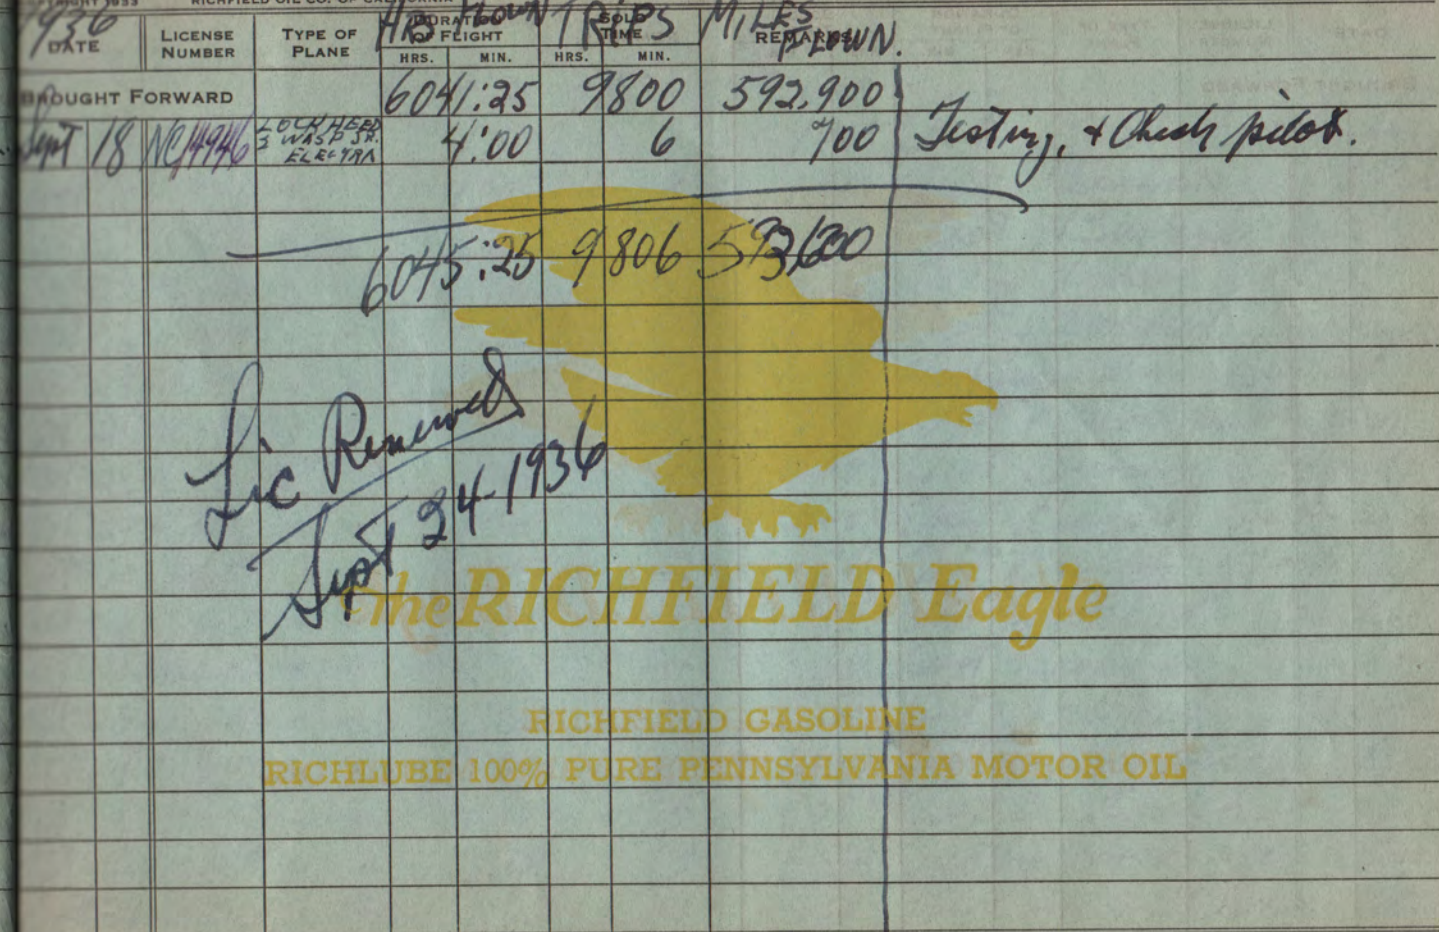 RICHFIELD OIL CO. OF CALIFORNIA
1936 HRS FLOWN TRIPS MILES FLOWN.
DATE LICENSE NUMBER TYPE OF PLANE DURATION OF FLIGHT SOLO TIME REMARKS
HRS. MIN. HRS. MIN.
BROUGHT FORWARD 6041:25 9800 592,900
Sept 18 NC14946 LOCKHEED 2 WASP JR. ELECTRA 4:00 6 700 Testing, & Check pilot.
6045:25 9806 593,600
Lic Renewed
Sept 24-1936
the RICHFIELD Eagle
RICHFIELD GASOLINE
RICHLUBE 100% PURE PENNSYLVANIA MOTOR OIL